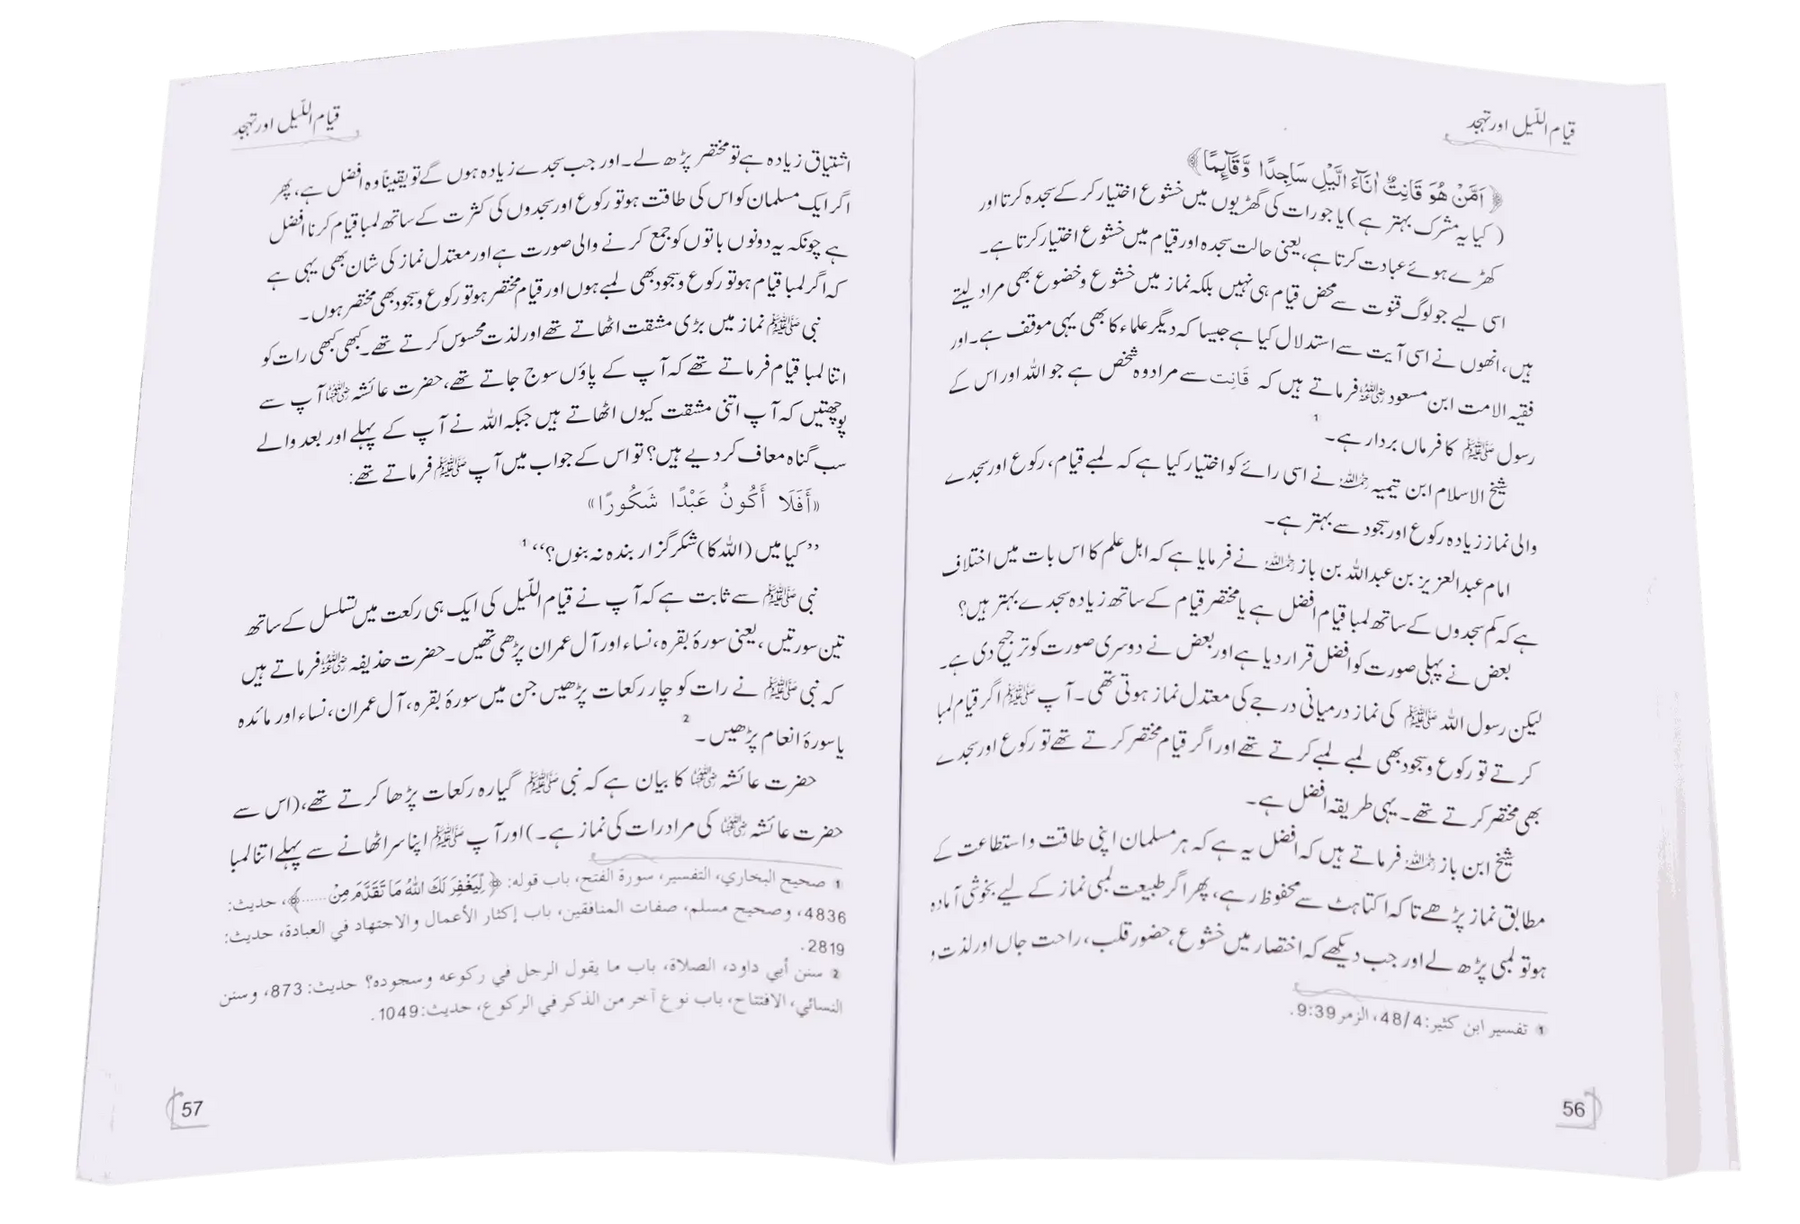 قیام اللّیل اور تہجد
﴿ اَمَّنْ هُوَ قَانِتٌ اٰنَآءَ الَّيْلِ سَاجِدًا وَّقَآىِٕمًا ﴾
(کیا یہ مشرک بہتر ہے) یا جو رات کی گھڑیوں میں خشوع اختیار کر کے سجدہ کرتا اور
کھڑے ہوئے عبادت کرتا ہے، یعنی حالت سجدہ اور قیام میں خشوع اختیار کرتا ہے۔
اسی لیے جو لوگ قنوت سے محض قیام ہی نہیں بلکہ نماز میں خشوع و خضوع بھی مراد لیتے
ہیں، انھوں نے اسی آیت سے استدلال کیا ہے جیسا کہ دیگر علماء کا بھی یہی موقف ہے۔ اور
فقیہ الامت ابن مسعود رضی اللہ عنہ فرماتے ہیں کہ قَانِت سے مراد وہ شخص ہے جو اللہ اور اس کے
رسول ﷺ کا فرماں بردار ہے۔ 1
شیخ الاسلام ابن تیمیہ رحمہ اللہ نے اسی رائے کو اختیار کیا ہے کہ لمبے قیام، رکوع اور سجدے
والی نماز زیادہ رکوع اور سجود سے بہتر ہے۔
امام عبدالعزیز بن عبداللہ بن باز رحمہ اللہ نے فرمایا ہے کہ اہل علم کا اس بات میں اختلاف
ہے کہ کم سجدوں کے ساتھ لمبا قیام افضل ہے یا مختصر قیام کے ساتھ زیادہ سجدے بہتر ہیں؟
بعض نے پہلی صورت کو افضل قرار دیا ہے اور بعض نے دوسری صورت کو ترجیح دی ہے۔
لیکن رسول اللہ ﷺ کی نماز درمیانی درجے کی معتدل نماز ہوتی تھی۔ آپ ﷺ اگر قیام لمبا
کرتے تو رکوع و سجود بھی لمبے لمبے کرتے تھے اور اگر قیام مختصر کرتے تھے تو رکوع اور سجدے
بھی مختصر کرتے تھے۔ یہی طریقہ افضل ہے۔
شیخ ابن باز رحمہ اللہ فرماتے ہیں کہ افضل یہ ہے کہ ہر مسلمان اپنی طاقت و استطاعت کے
مطابق نماز پڑھے تاکہ اکتاہٹ سے محفوظ رہے، پھر اگر طبیعت لمبی نماز کے لیے بخوشی آمادہ
ہو تو لمبی پڑھ لے اور جب دیکھے کہ اختصار میں خشوع، حضور قلب، راحت جاں اور لذت و
1 تفسیر ابن کثیر: 48/4، الزمر 9:39.
56
قیام اللّیل اور تہجد
اشتیاق زیادہ ہے تو مختصر پڑھ لے۔ اور جب سجدے زیادہ ہوں گے تو یقیناً وہ افضل ہے، پھر
اگر ایک مسلمان کو اس کی طاقت ہو تو رکوع اور سجدوں کی کثرت کے ساتھ لمبا قیام کرنا افضل
ہے چونکہ یہ دونوں باتوں کو جمع کرنے والی صورت ہے اور معتدل نماز کی شان بھی یہی ہے
کہ اگر لمبا قیام ہو تو رکوع و سجود بھی لمبے ہوں اور قیام مختصر ہو تو رکوع و سجود بھی مختصر ہوں۔
نبی ﷺ نماز میں بڑی مشقت اٹھاتے تھے اور لذت محسوس کرتے تھے۔ کبھی کبھی رات کو
اتنا لمبا قیام فرماتے تھے کہ آپ کے پاؤں سوج جاتے تھے، حضرت عائشہ رضی اللہ عنہا آپ سے
پوچھتیں کہ آپ اتنی مشقت کیوں اٹھاتے ہیں جبکہ اللہ نے آپ کے پہلے اور بعد والے
سب گناہ معاف کر دیے ہیں؟ تو اس کے جواب میں آپ ﷺ فرماتے تھے:
«أَفَلَا أَكُونُ عَبْدًا شَكُورًا»
’’کیا میں (اللہ کا) شکر گزار بندہ نہ بنوں؟‘‘ 1
نبی ﷺ سے ثابت ہے کہ آپ نے قیام اللّیل کی ایک ہی رکعت میں تسلسل کے ساتھ
تین سورتیں، یعنی سورۂ بقرہ، نساء اور آل عمران پڑھی تھیں۔ حضرت حذیفہ رضی اللہ عنہ فرماتے ہیں
کہ نبی ﷺ نے رات کو چار رکعات پڑھیں جن میں سورۂ بقرہ، آل عمران، نساء اور مائدہ
یا سورۂ انعام پڑھیں۔ 2
حضرت عائشہ رضی اللہ عنہا کا بیان ہے کہ نبی ﷺ گیارہ رکعات پڑھا کرتے تھے، (اس سے
حضرت عائشہ رضی اللہ عنہا کی مراد رات کی نماز ہے۔) اور آپ ﷺ اپنا سر اٹھانے سے پہلے اتنا لمبا
1 صحيح البخاري، التفسير، سورة الفتح، باب قوله: ﴿لِّيَغْفِرَ لَكَ اللّٰهُ مَا تَقَدَّمَ مِنْ ......﴾، حديث:
4836، وصحيح مسلم، صفات المنافقين، باب إكثار الأعمال والاجتهاد في العبادة، حديث:
2819.
2 سنن أبي داود، الصلاة، باب ما يقول الرجل في ركوعه وسجوده؟ حديث: 873، وسنن
النسائي، الافتتاح، باب نوع آخر من الذكر في الركوع، حديث: 1049.
57